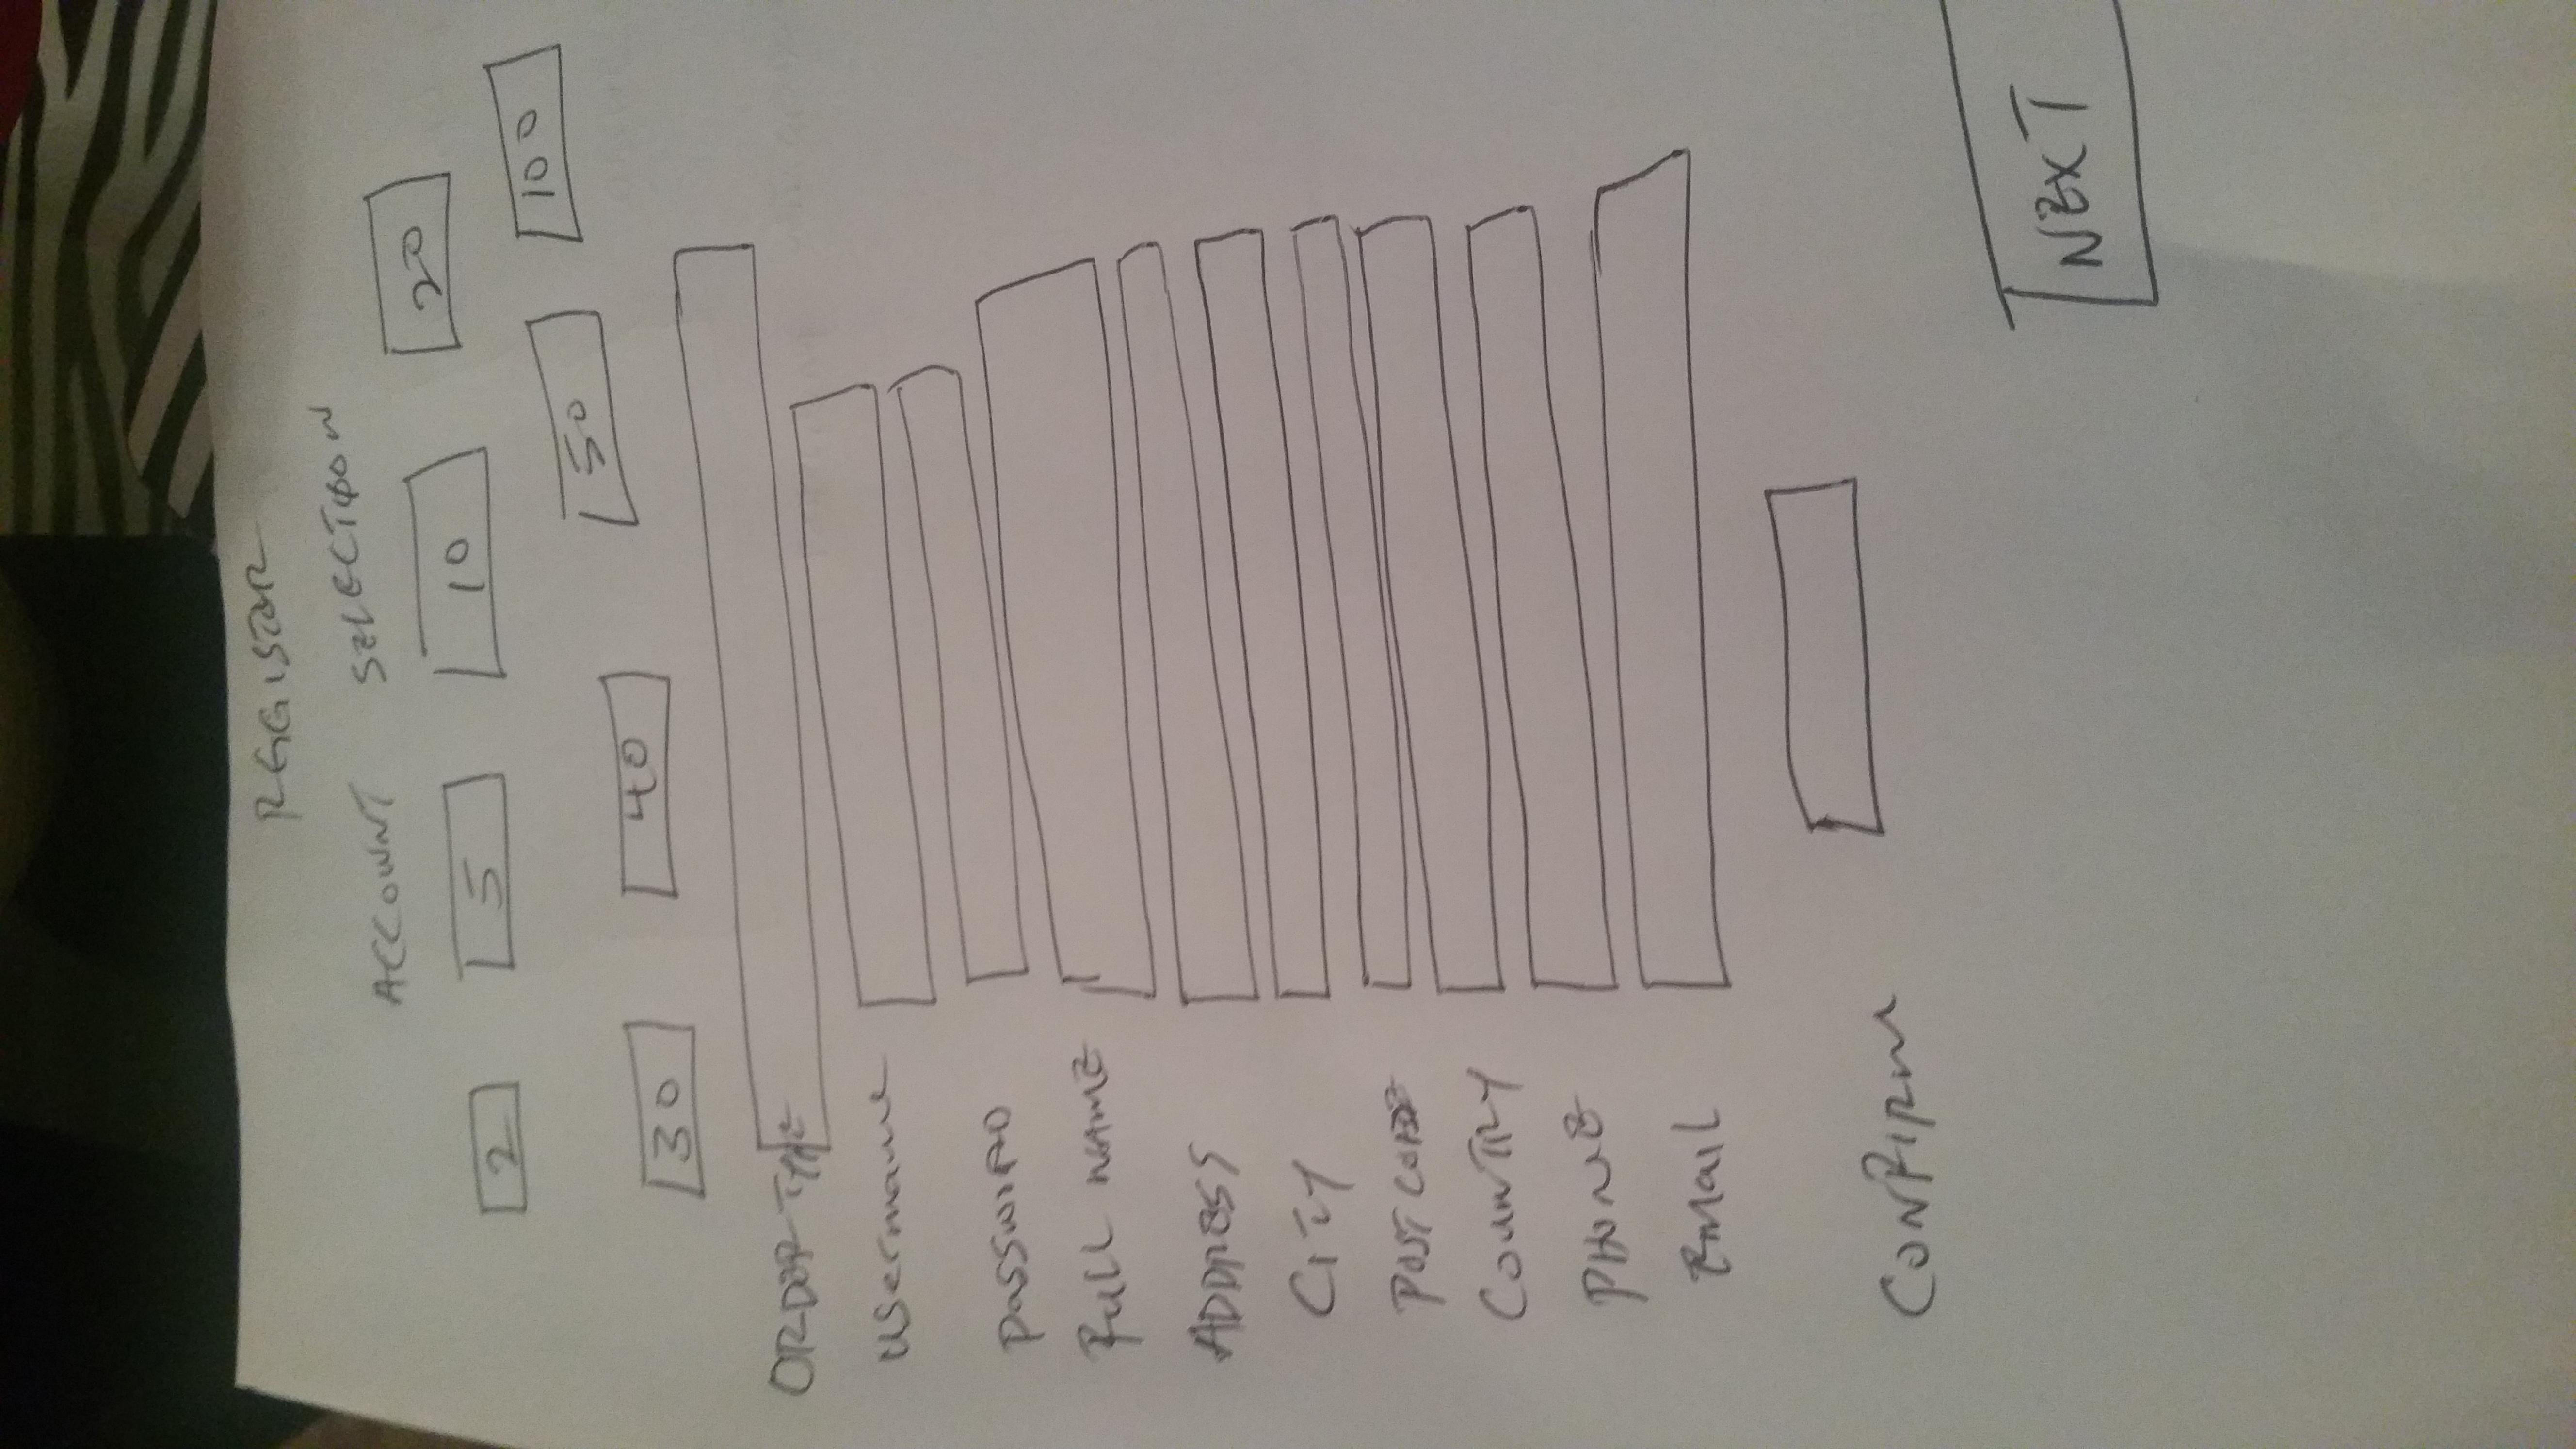 REGISTER
ACCOUNT SELECTION
2 5 10 20
30 40 50 100
ORDER TYPE
username
password
FULL NAME
ADDRESS
CITY
POST CODE
COUNTRY
PHONE
Email
CONFIRM
NEXT